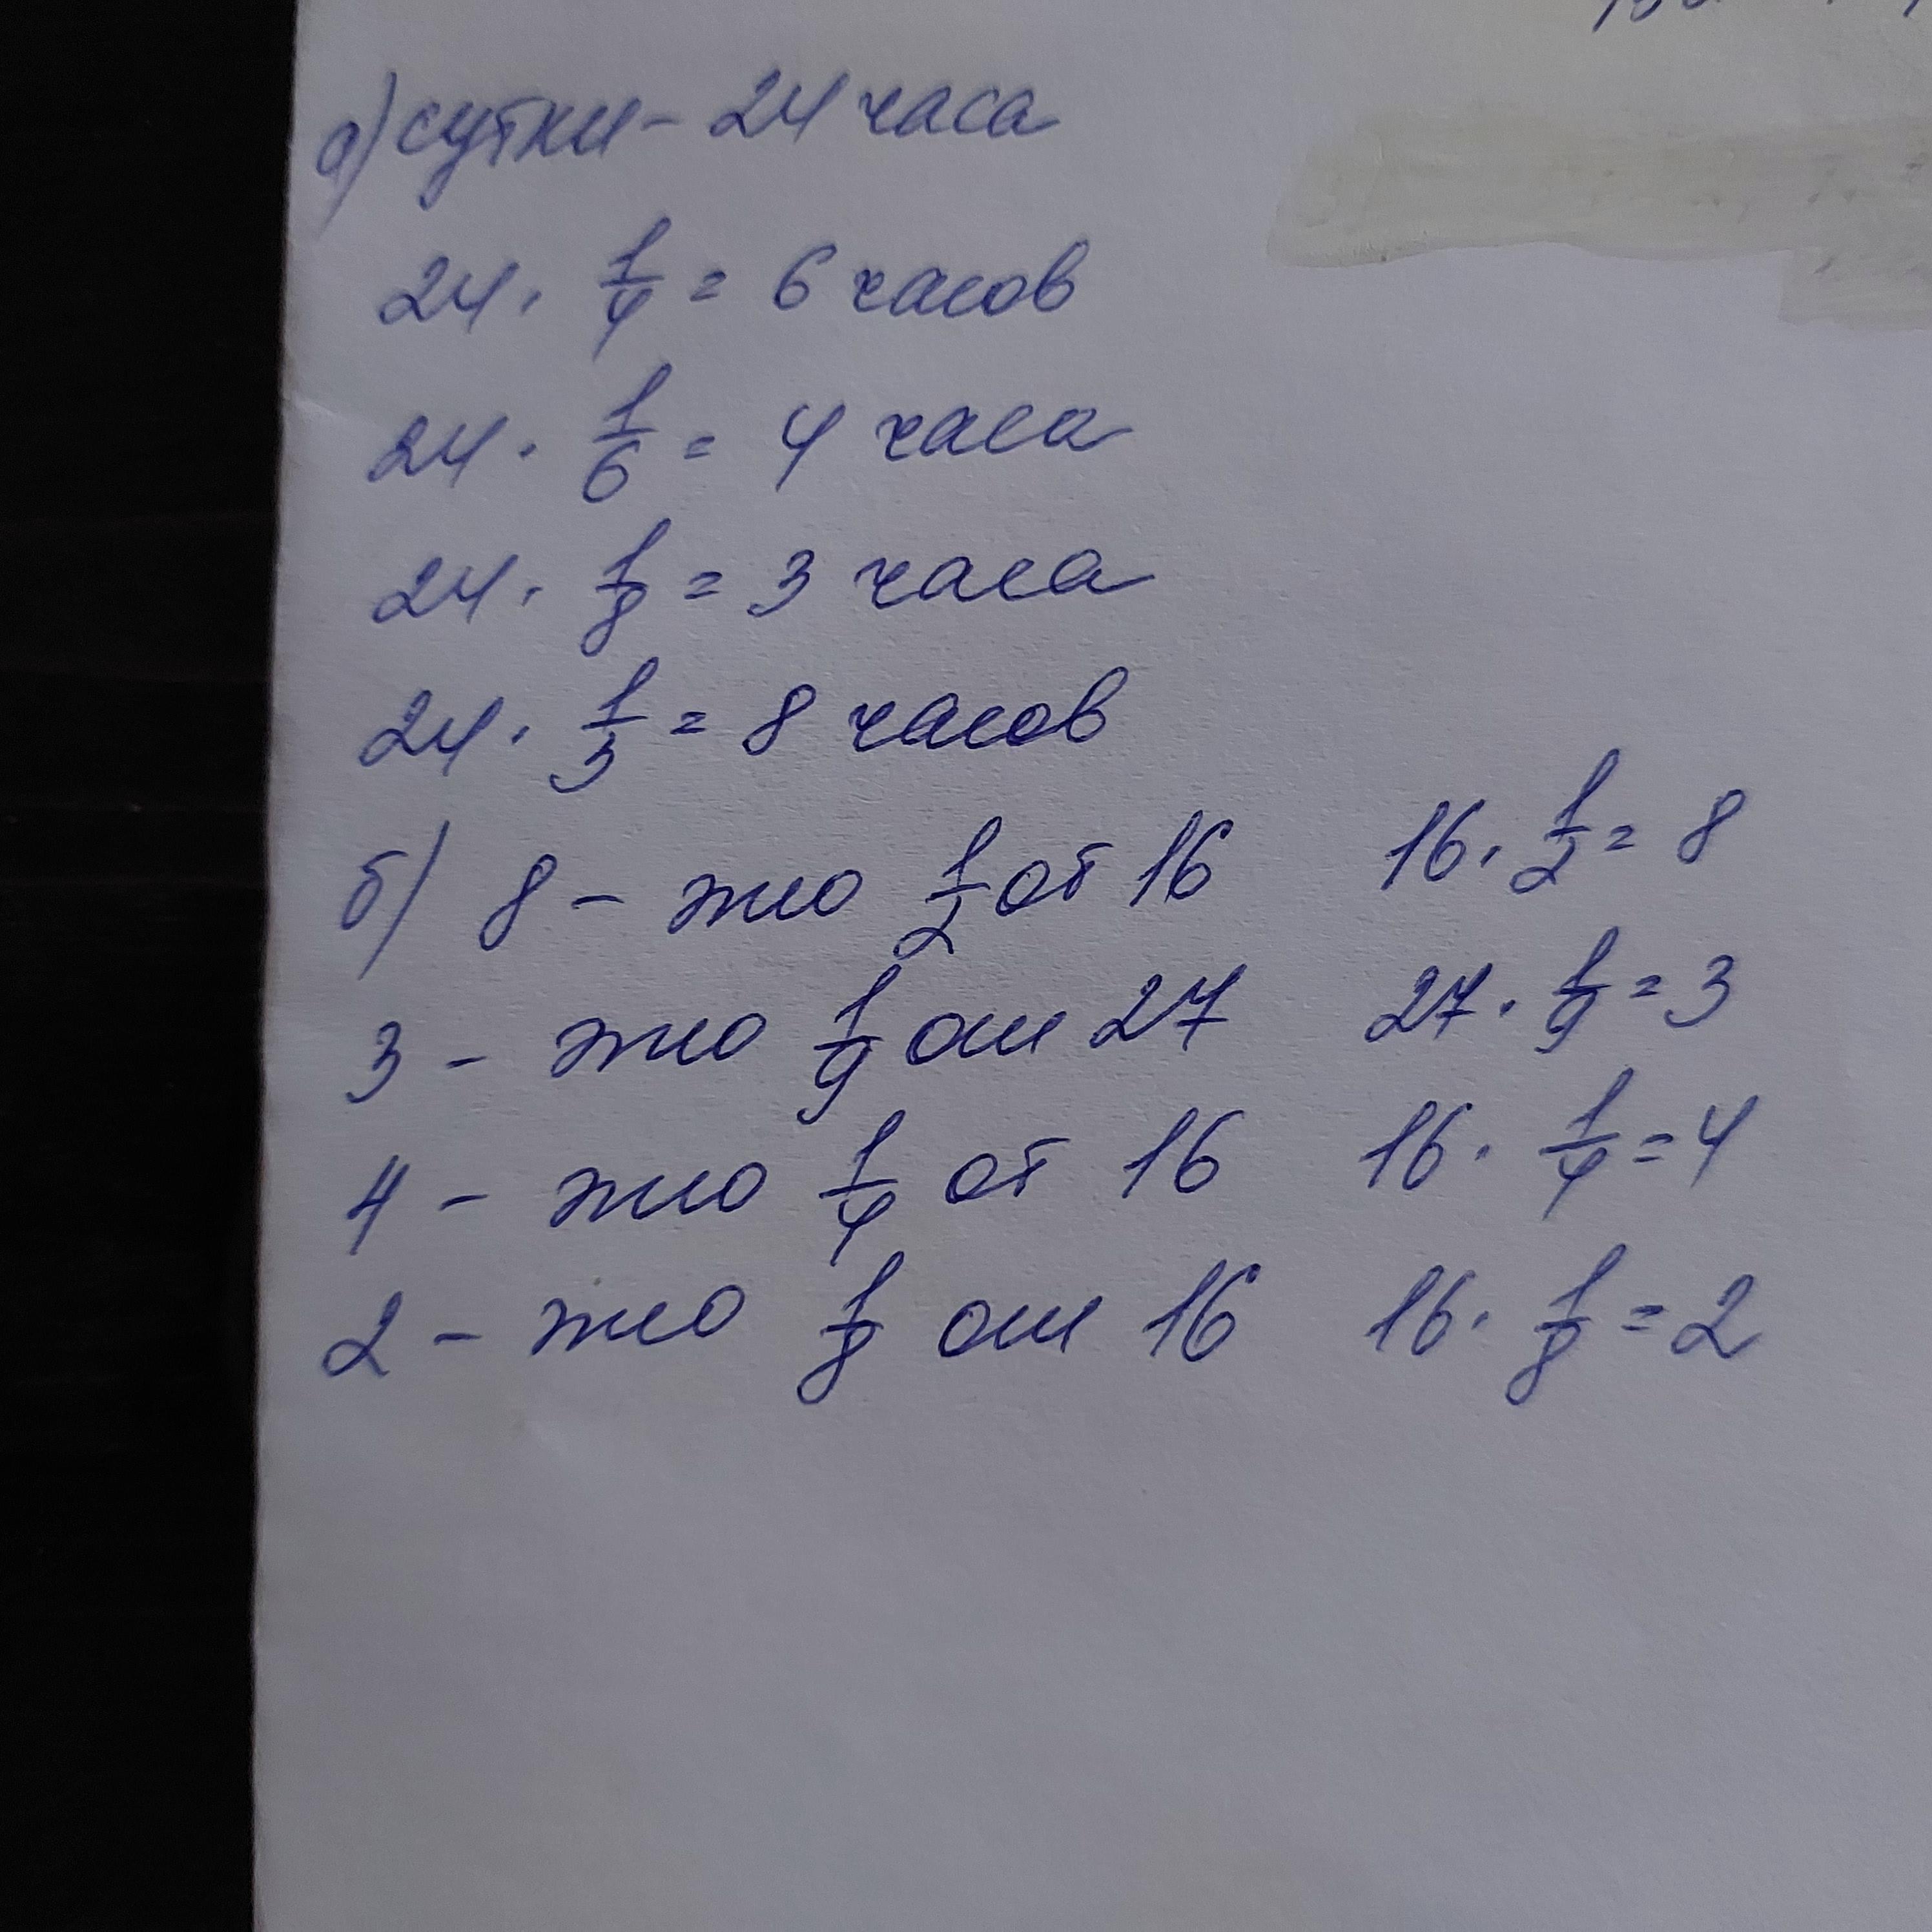 а) сутки - 24 часа
24 · 1/4 = 6 часов
24 · 1/6 = 4 часа
24 · 1/8 = 3 часа
24 · 1/3 = 8 часов
б) 8 - это 1/2 от 16 16 · 1/2 = 8
3 - это 1/9 от 27 27 · 1/9 = 3
4 - это 1/4 от 16 16 · 1/4 = 4
2 - это 1/8 от 16 16 · 1/8 = 2